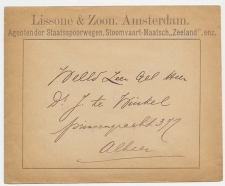 Lissone & Zoon. Amsterdam.
Agenten der Staatsspoorwegen, Stoomvaart-Maatsch. „Zeeland", enz.
WelEd Zeer Gel Heer
Dr J. te Winkel
Prinsengracht
Alhier